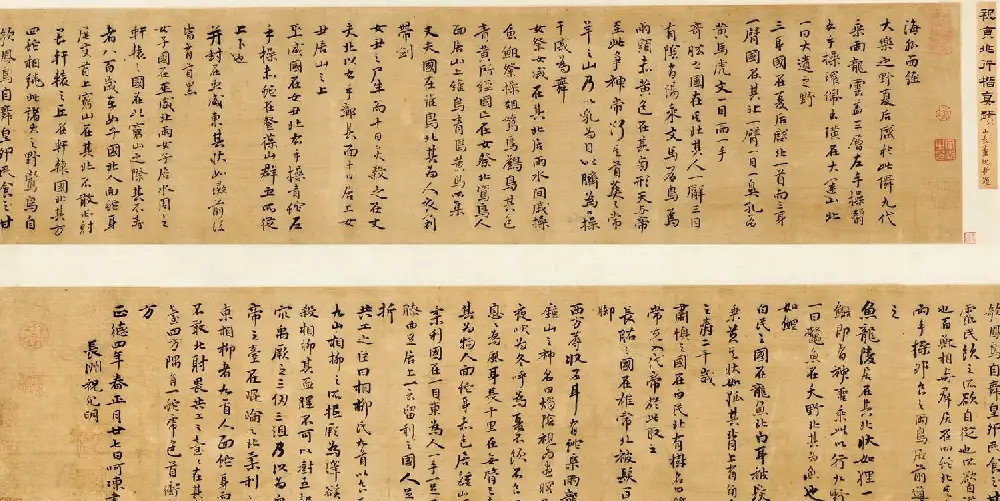 祝京兆行楷真蹟
海外西經
大樂之野夏后啟於此儛九代
乘兩龍雲蓋三層左手操翳
右手操環佩玉璜在大運山北
一曰大遺之野
三身國在夏后啟北一首而三身
一臂國在其北一臂一目一鼻孔有
黃馬虎文一目而一手
奇肱之國在其北其人一臂三目
有陰有陽乘文馬有鳥焉
兩頭赤黃色在其旁形天與帝
至此爭神帝斷其首葬之常
羊之山乃以乳為目以臍為口操
干戚為舞
女祭女戚在其北居兩水間戚操
魚䱇祭操俎鶿鳥鶬鳥其色
青黃所經國亡在女祭北鶿鳥人
面居山上維鳥青鳥黃鳥所集
丈夫國在維鳥北其為人衣冠
帶劍
女丑之尸生而十日炙殺之在丈
夫北以右手鄣其面十日居上女
丑居山之上
巫咸國在女丑北右手操青蛇左
手操赤蛇在登葆山群巫所從
上下也
并封在巫咸東其狀如彘前後
皆有首黑
女子國在巫咸北兩女子居水周之
軒轅之國在此窮山之際其不壽
者八百歲在女子國北人面蛇身
尾交首上窮山在其北不敢西射
畏軒轅之丘在軒轅國北其方
四蛇相繞此諸夭之野鸞鳥自
歌鳳鳥自舞皇卵民食之甘
歌鳳鳥自舞皇卵民食之
露民飲之所欲自從
也百獸相與群居在四蛇北
兩手操卵食之兩鳥居前導
之
魚龍陵居在其北狀如狸一
鰕即有神聖乘此以行九野
一曰鱉魚在夭野北其為魚也
如鯉
白民之國在龍魚北白身被髮
乘黃其狀如狐其背上有角
之壽二千歲
肅慎之國在白民北有樹名曰
常先入代帝於此取之
長股之國在雄常北被髮一曰
脚
西方蓐收左耳有蛇乘兩
鍾山之神名曰燭陰視為晝瞑
夜吹為冬呼為夏不飲不食
息息為風身長千里在無啓
其為物人面蛇身赤色居鍾山
柔利國在一目東為人一手一足
膝曲足居上一云留利之國人足
折
共工之臣曰相柳氏九首以食
九山相柳之所抵厥為澤谿
殺相柳其血腥不可以樹五穀
禹厥之三仞三沮乃以為
帝之臺在崑崙北柔利
東相柳者九首人面蛇身而
不敢北射畏共工之臺臺在其
臺四方隅有一蛇虎色首衝
方
正德四年春正月廿七日呵凍書
長洲祝允明